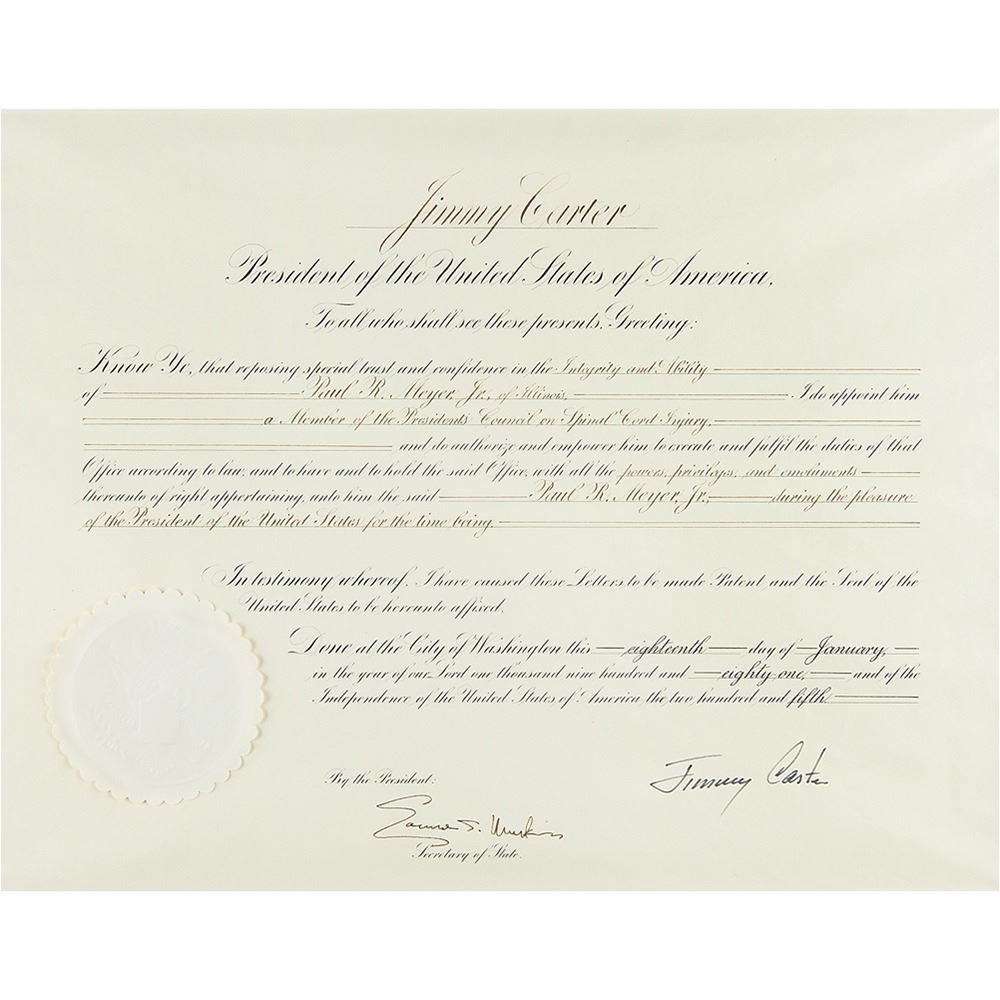 Jimmy Carter
President of the United States of America.
To all who shall see these presents, Greeting:
Know Ye, that reposing special trust and confidence in the Integrity and Ability
of Paul R. Meyer, Jr., of Illinois, I do appoint him
a Member of the Presidents Council on Spinal Cord Injury,
and do authorize and empower him to execute and fulfil the duties of that
Office according to law, and to have and to hold the said Office, with all the powers, privileges, and emoluments
thereunto of right appertaining, unto him the said Paul R. Meyer, Jr., during the pleasure
of the President of the United States for the time being.
In testimony whereof, I have caused these Letters to be made Patent and the Seal of the
United States to be hereunto affixed.
Done at the City of Washington this eighteenth day of January,
in the year of our Lord one thousand nine hundred and eighty-one, and of the
Independence of the United States of America the two hundred and fifth.
Jimmy Carter
By the President:
Edmund S. Muskie
Secretary of State.